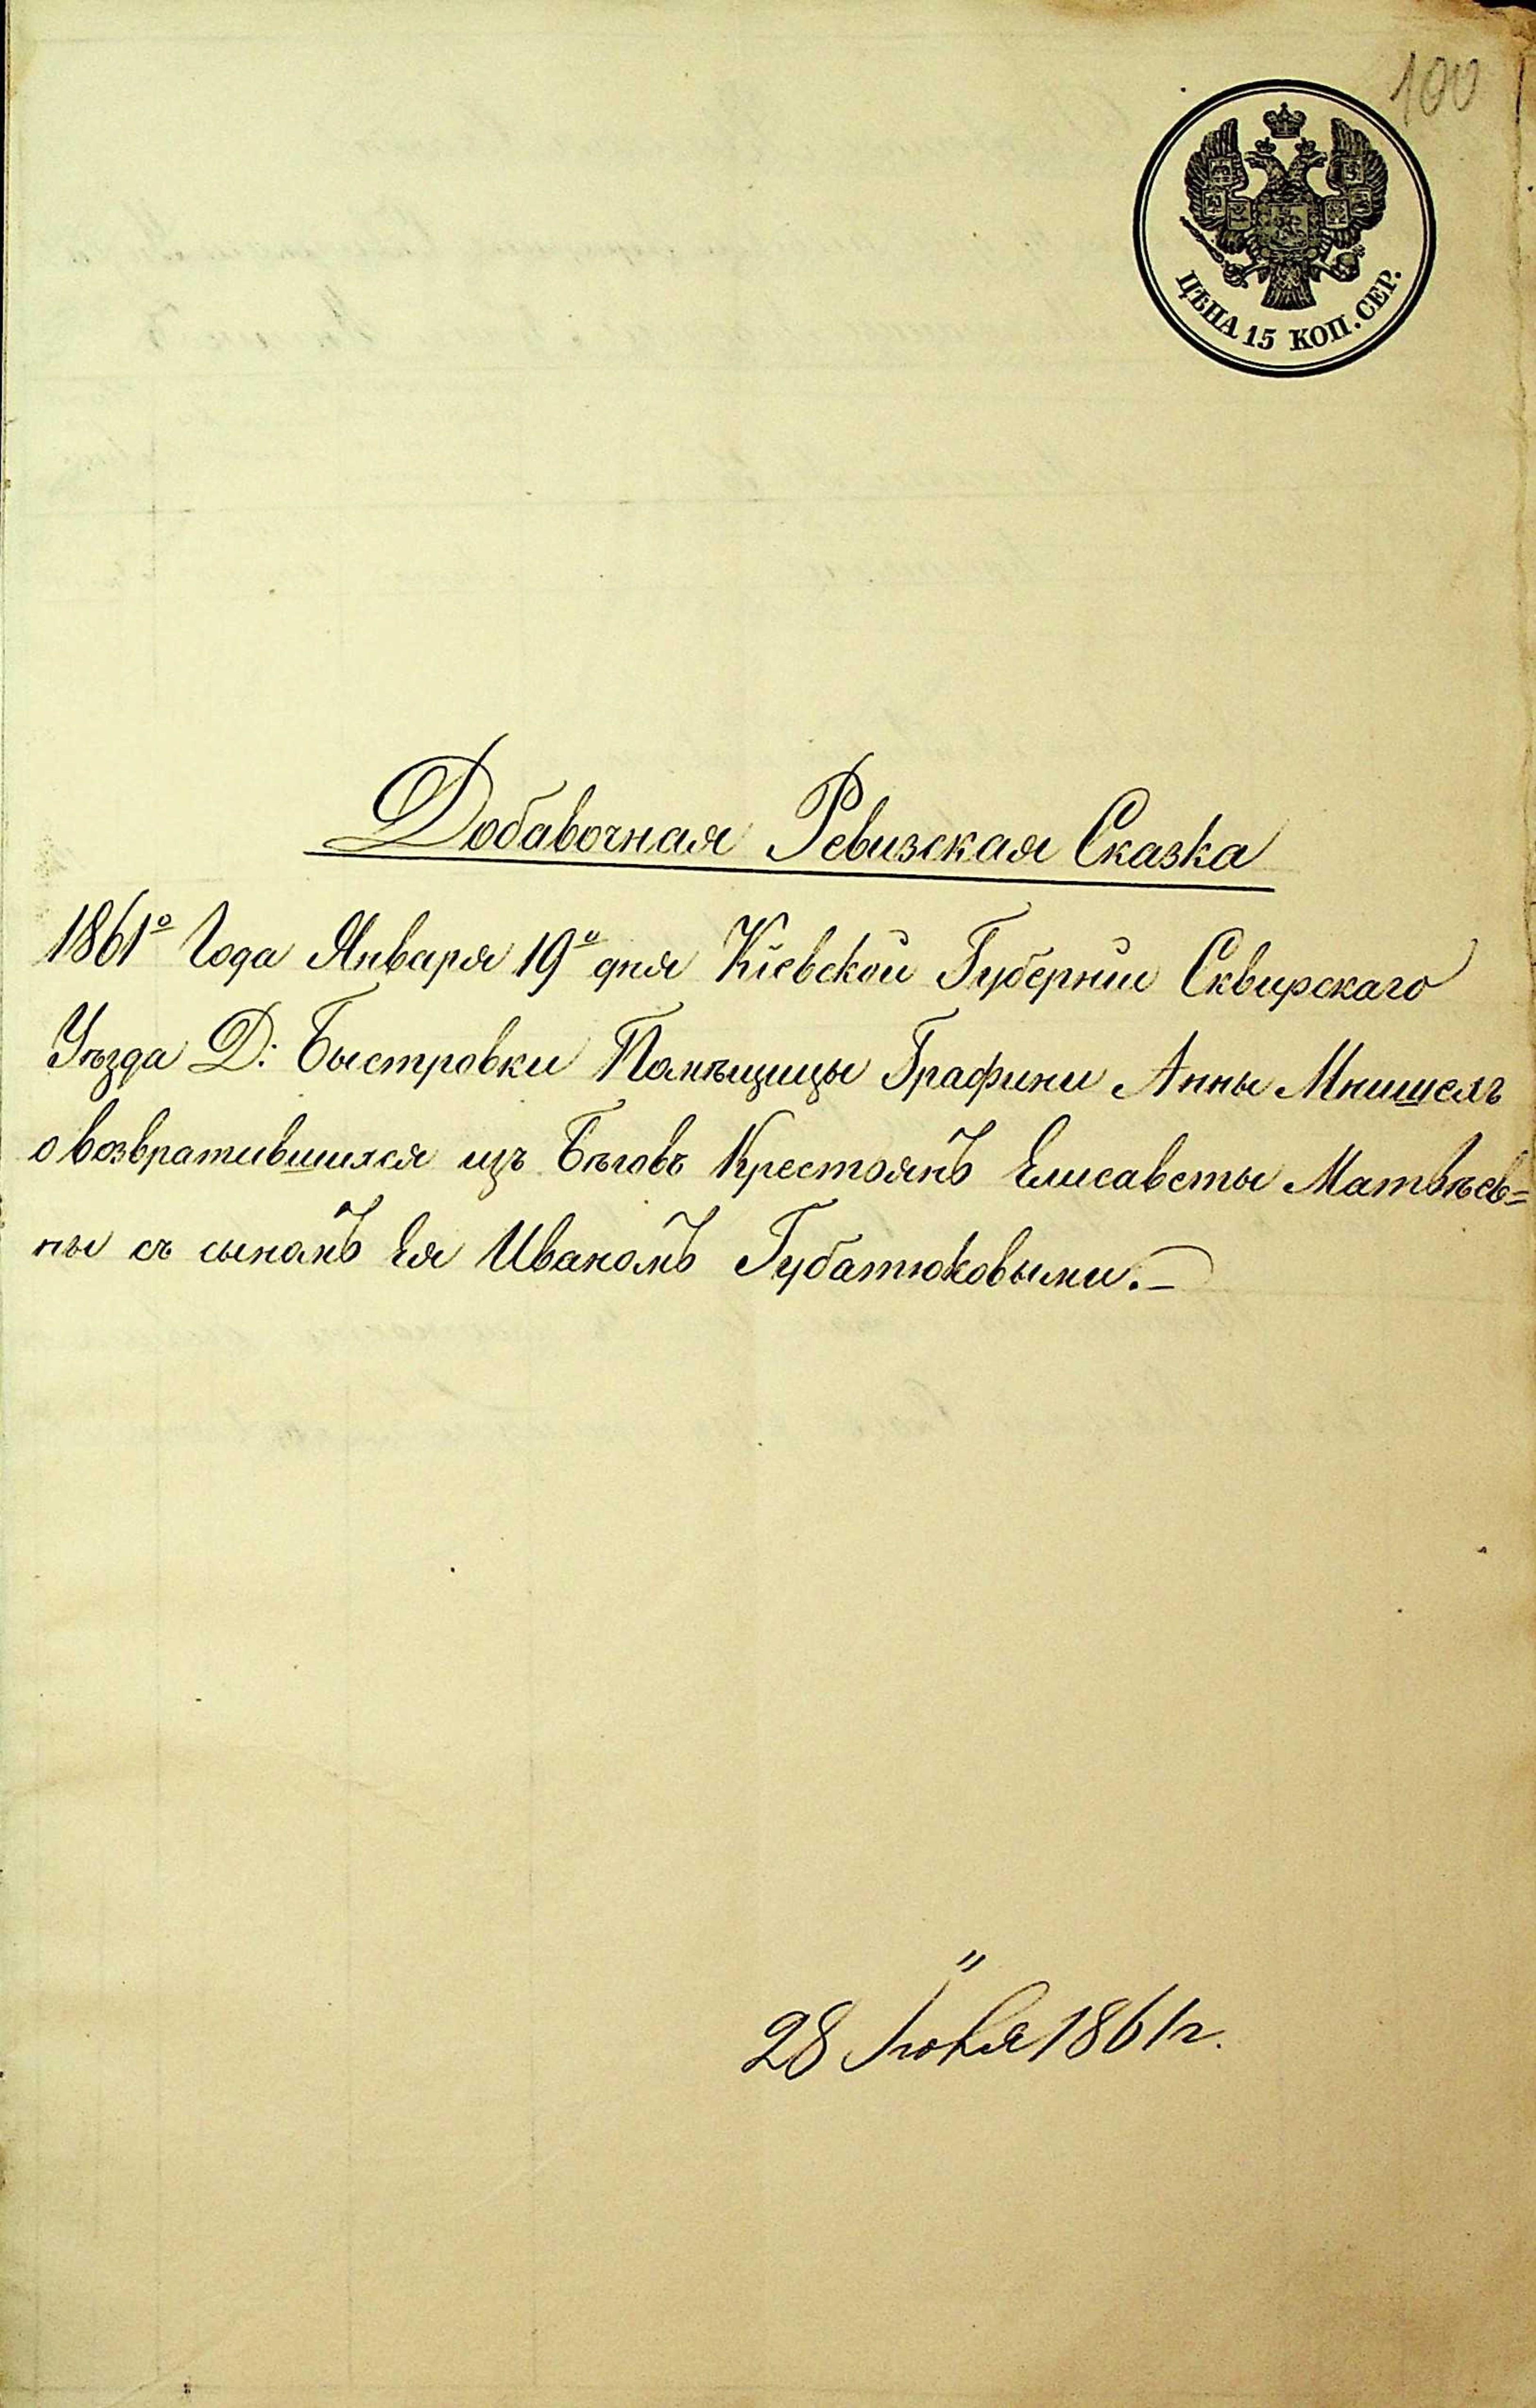 100
ЦѢНА 15 КОП. СЕР.
Добавочная Ревизская Сказка
1861º Года Января 19º дня Кіевской Губерніи Сквирскаго
Уѣзда Д: Быстровки Помѣщицы Графини Анны Мнишехъ
о возвратившихся изъ Бѣговъ Крестоянъ Елисаветы Матвѣев=
ны съ сыномъ Ея Иваномъ Губатюковыми.–
28 1861 г.